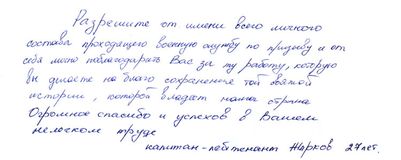 Разрешите от имени всего личного
состава проходящего военную службу по призыву и от
себя лично поблагодарить Вас за ту работу, которую
вы делаете на благо сохранения той великой
истории, которой владеет наша страна
Огромное спасибо и успехов в Вашем
нелегком труде
капитан-лейтенант Жарков 27 лет.